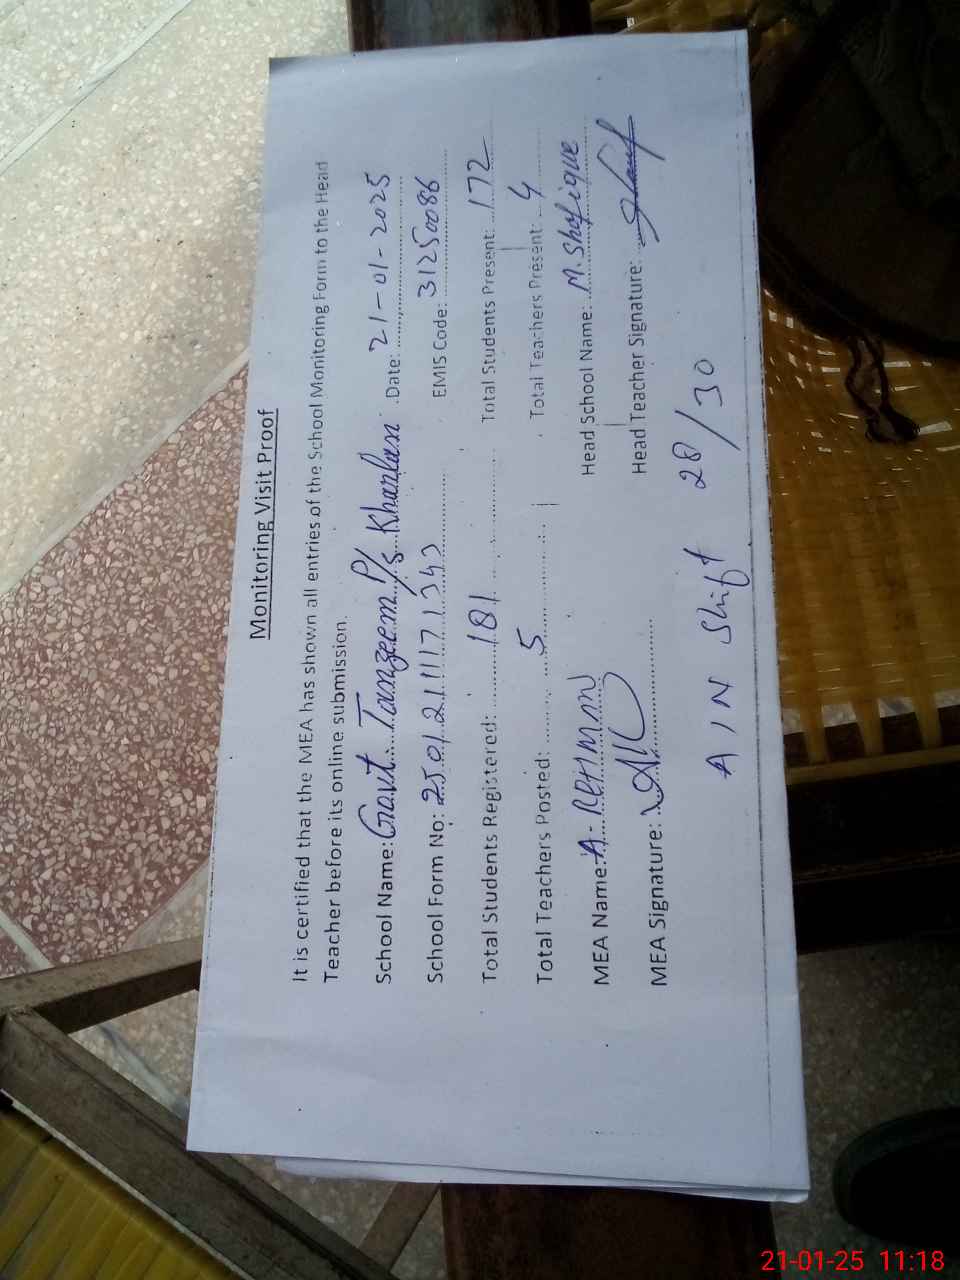 Monitoring Visit Proof
It is certified that the MEA has shown all entries of the School Monitoring Form to the Head
Teacher before its online submission.
School Name: Govt. Tanzeem P/s Khanlan Date: 21-01-2025
School Form No: 250121111171343 EMIS Code: 31250086
Total Students Registered: 181 Total Students Present: 172
Total Teachers Posted: 5 Total Teachers Present: 4
MEA Name: A-REHMAN Head School Name: M. Shafique
MEA Signature: Head Teacher Signature:
A/N Shift 28/30
21-01-25 11:18